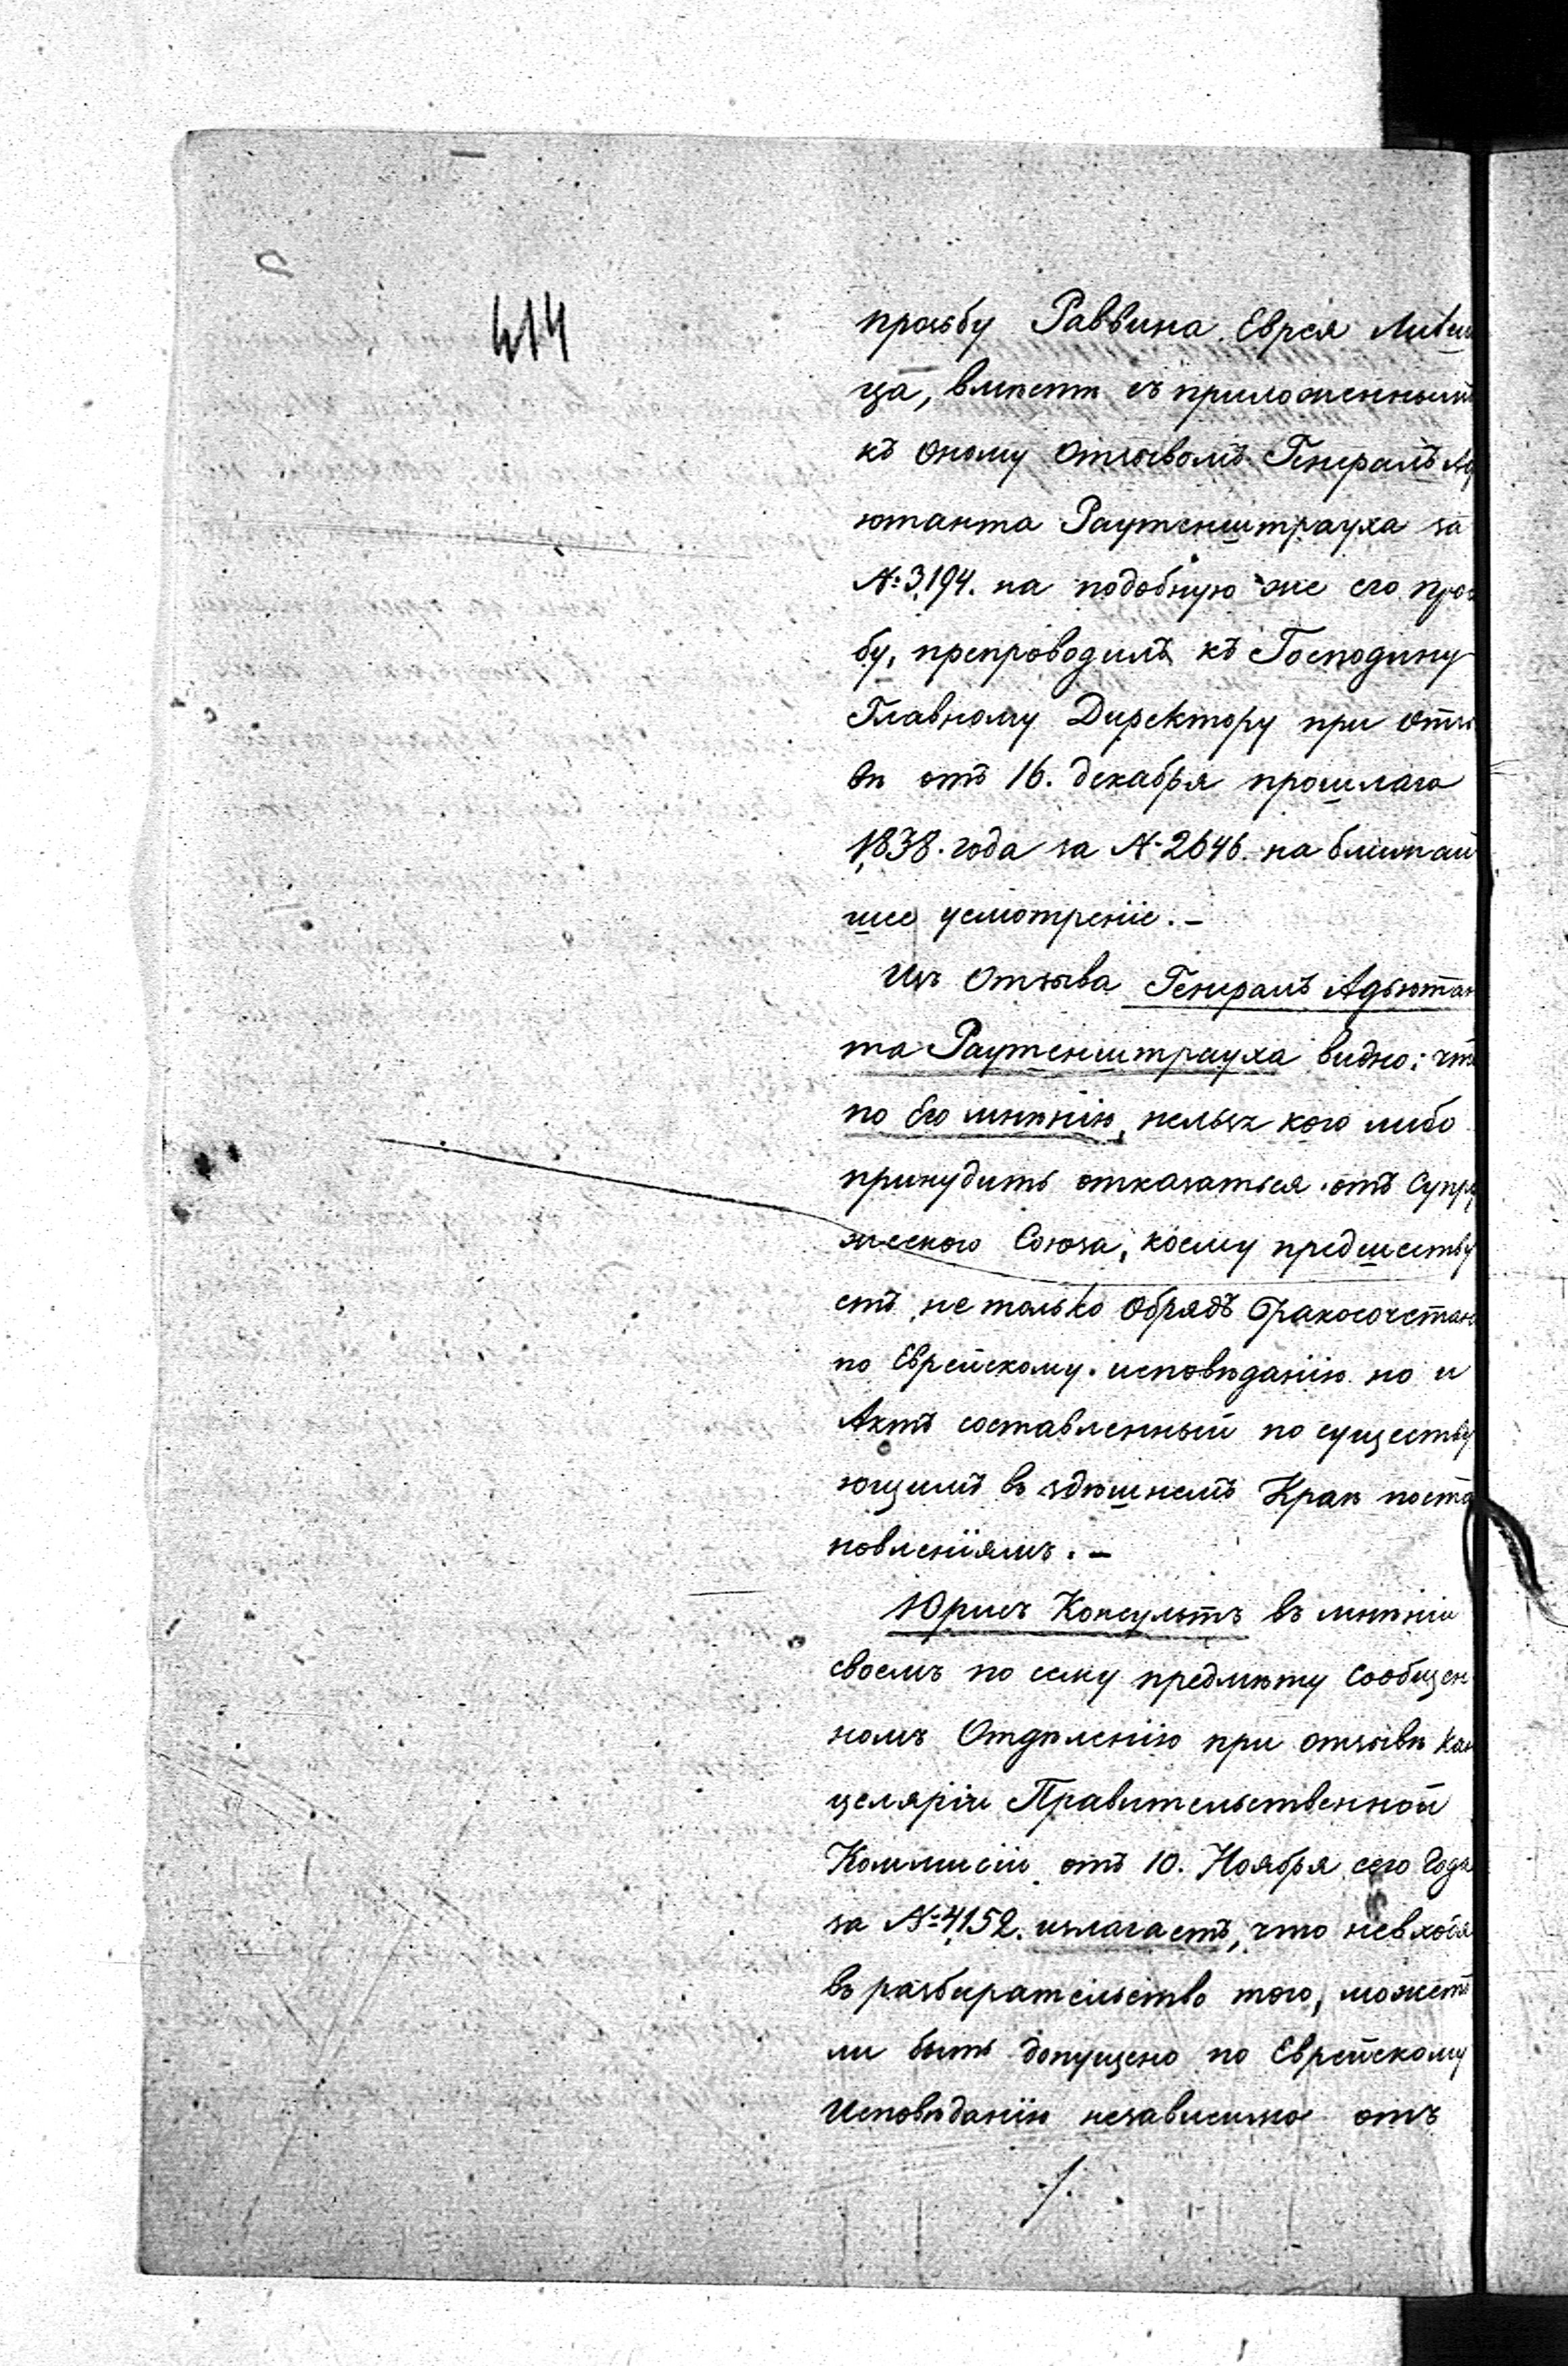 414
прозьбу Раввина Еврея Ливши
ца, вмѣстѣ съ приложеннымъ
къ оному Отзывомъ Генералъ Ад
ютанта Раутенштрауха за
№ 3,194. на подобную же его проз
бу, препроводилъ къ Господину
Главному Директору при отзы
вѣ отъ 16. декабря прошлаго
1,838. года за № 2646. на ближай
шее усмотреніе. –
Изъ Отзыва Генералъ Адьютан
та Раутенштрауха видно: что
по Его мнѣнію, нельзя кого либо
принудить отказаться отъ Супру
жескаго Союза, коему предшеству
етъ не только Обрядъ Бракосочетан
по Еврейскому исповѣданію но и
Актъ составленный по существу
ющимъ въ здѣшнемъ Краѣ поста
новленіямъ. –
Юрисъ Консультъ въ мнѣніи
своемъ по сему предмѣту Сообщен
номъ Отдѣленію при отзывѣ Кан
целяріи Правительственной
Коммисіи отъ 10. Ноября сего Года
за № 4,152. излагаетъ, что невходя
въ разбирательство того, можетъ
ли быть допущено по Еврейскому
Исповѣданію независимо отъ
./.